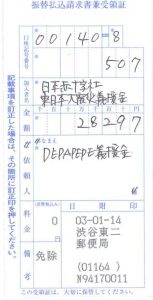 振替払込請求書兼受領証
口座記号番号
00140=8
507
加入者名
日本赤十字社
東日本大震災義援金
金額
千 百 十 万 千 百 十 円
28297
ご依頼人
おなまえ
DEPAPEPE義援金
料金
0
円
備考
免除
日附印
03-01-14
渋谷東二
郵便局
(01164)
N94170011
記載事項を訂正した場合は、その箇所に訂正印を押してください。
この受領証は、大切に保管してください。